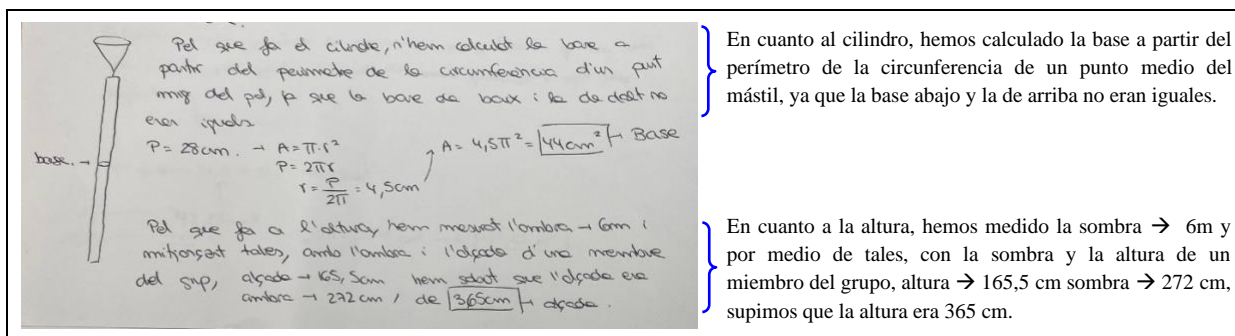 Pel que fa el cilindre, n'hem calculat la base a
partir del perímetre de la circumferència d'un punt
mig del pal, ja que la base de baix i la de dalt no
eren iguals
P = 28cm. → A = π·r²
P = 2πr
r = P/2π = 4,5cm
A = 4,5π² = 44cm² → Base
base. →
Pel que fa a l'altura, hem mesurat l'ombra → 6m i
mitjançant tales, amb l'ombra i l'alçada d'una membre
del grup, alçada → 165,5cm hem sabut que l'alçada era
ombra → 272 cm, de 365cm → alçada.
En cuanto al cilindro, hemos calculado la base a partir del
perímetro de la circunferencia de un punto medio del
mástil, ya que la base abajo y la de arriba no eran iguales.
En cuanto a la altura, hemos medido la sombra → 6m y
por medio de tales, con la sombra y la altura de un
miembro del grupo, altura → 165,5 cm sombra → 272 cm,
supimos que la altura era 365 cm.